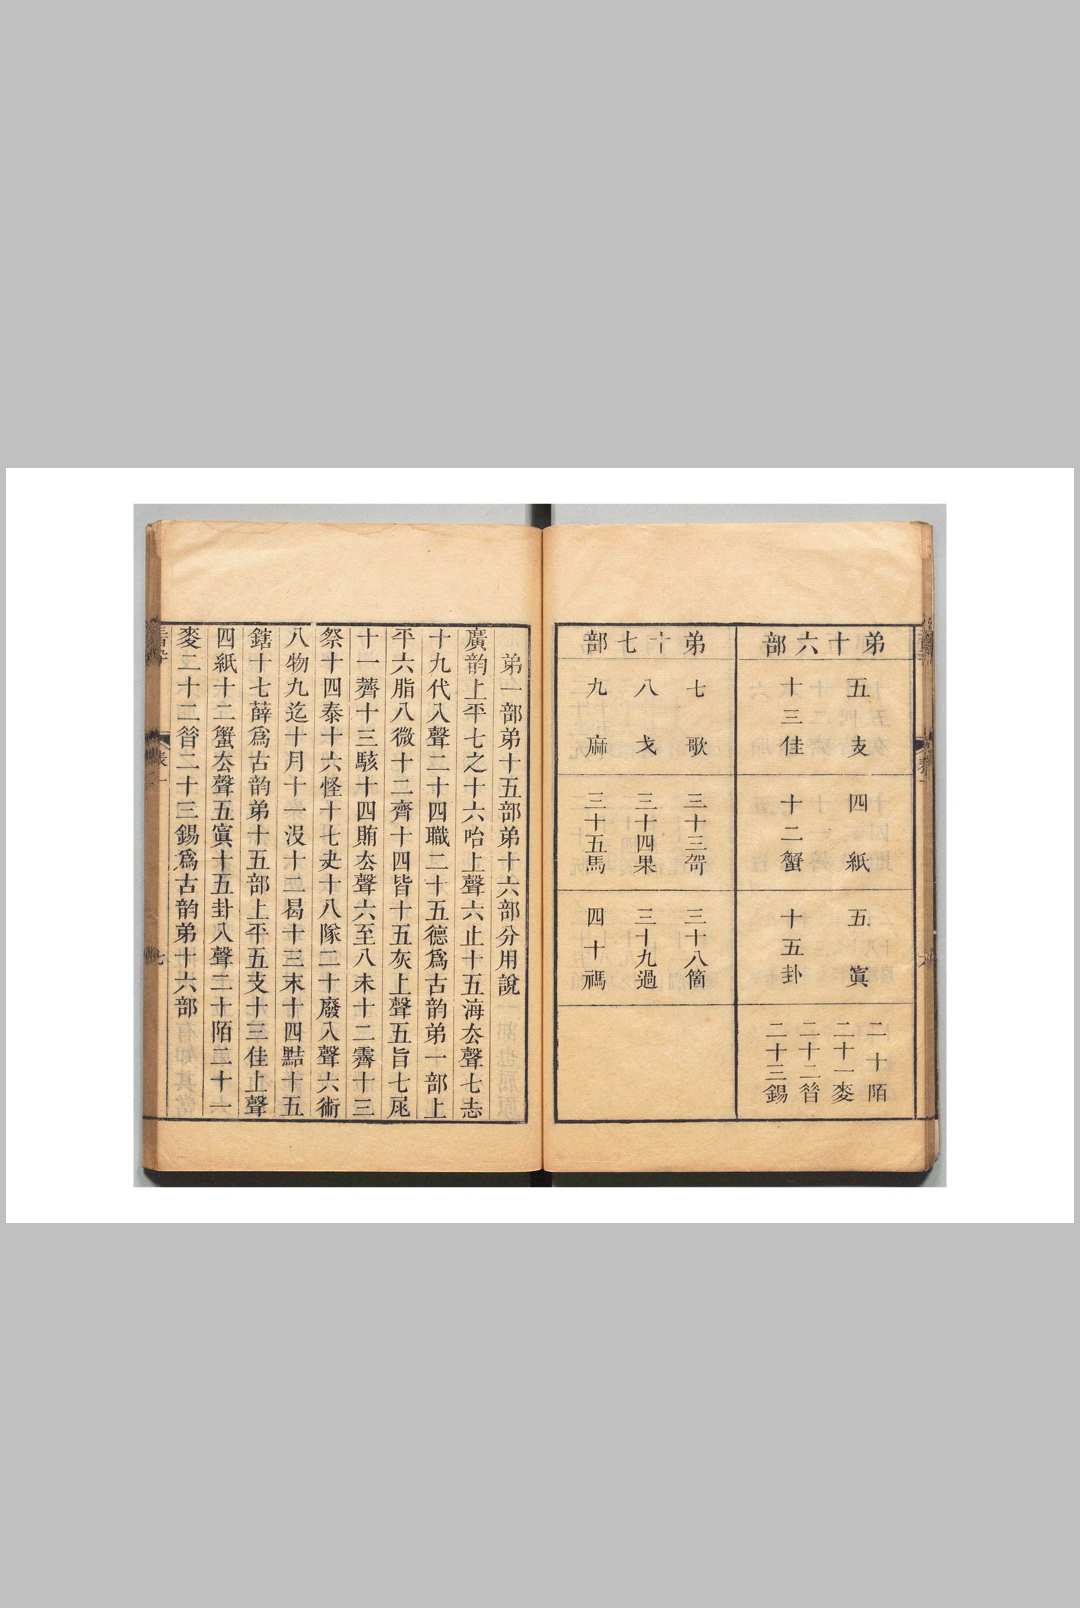 弟十六部
五支
十三佳
四紙
十二蟹
五寘
十五卦
二十陌
二十一麥
二十二㫺
二十三錫
弟十七部
七歌
八戈
九麻
三十三哿
三十四果
三十五馬
三十八箇
三十九過
四十禡
弟一部弟十五部弟十六部分用說
廣韵上平七之十六咍上聲六止十五海厺聲七志
十九代入聲二十四職二十五德爲古韵弟一部上
平六脂八微十二齊十四皆十五灰上聲五旨七尾
十一薺十三駭十四賄厺聲六至八未十二霽十三
祭十四泰十六怪十七夬十八隊二十廢入聲六術
八物九迄十月十一沒十二曷十三末十四黠十五
鎋十七薛爲古韵弟十五部上平五支十三佳上聲
四紙十二蟹厺聲五寘十五卦入聲二十陌二十一
麥二十二㫺二十三錫爲古韵弟十六部
表一
七